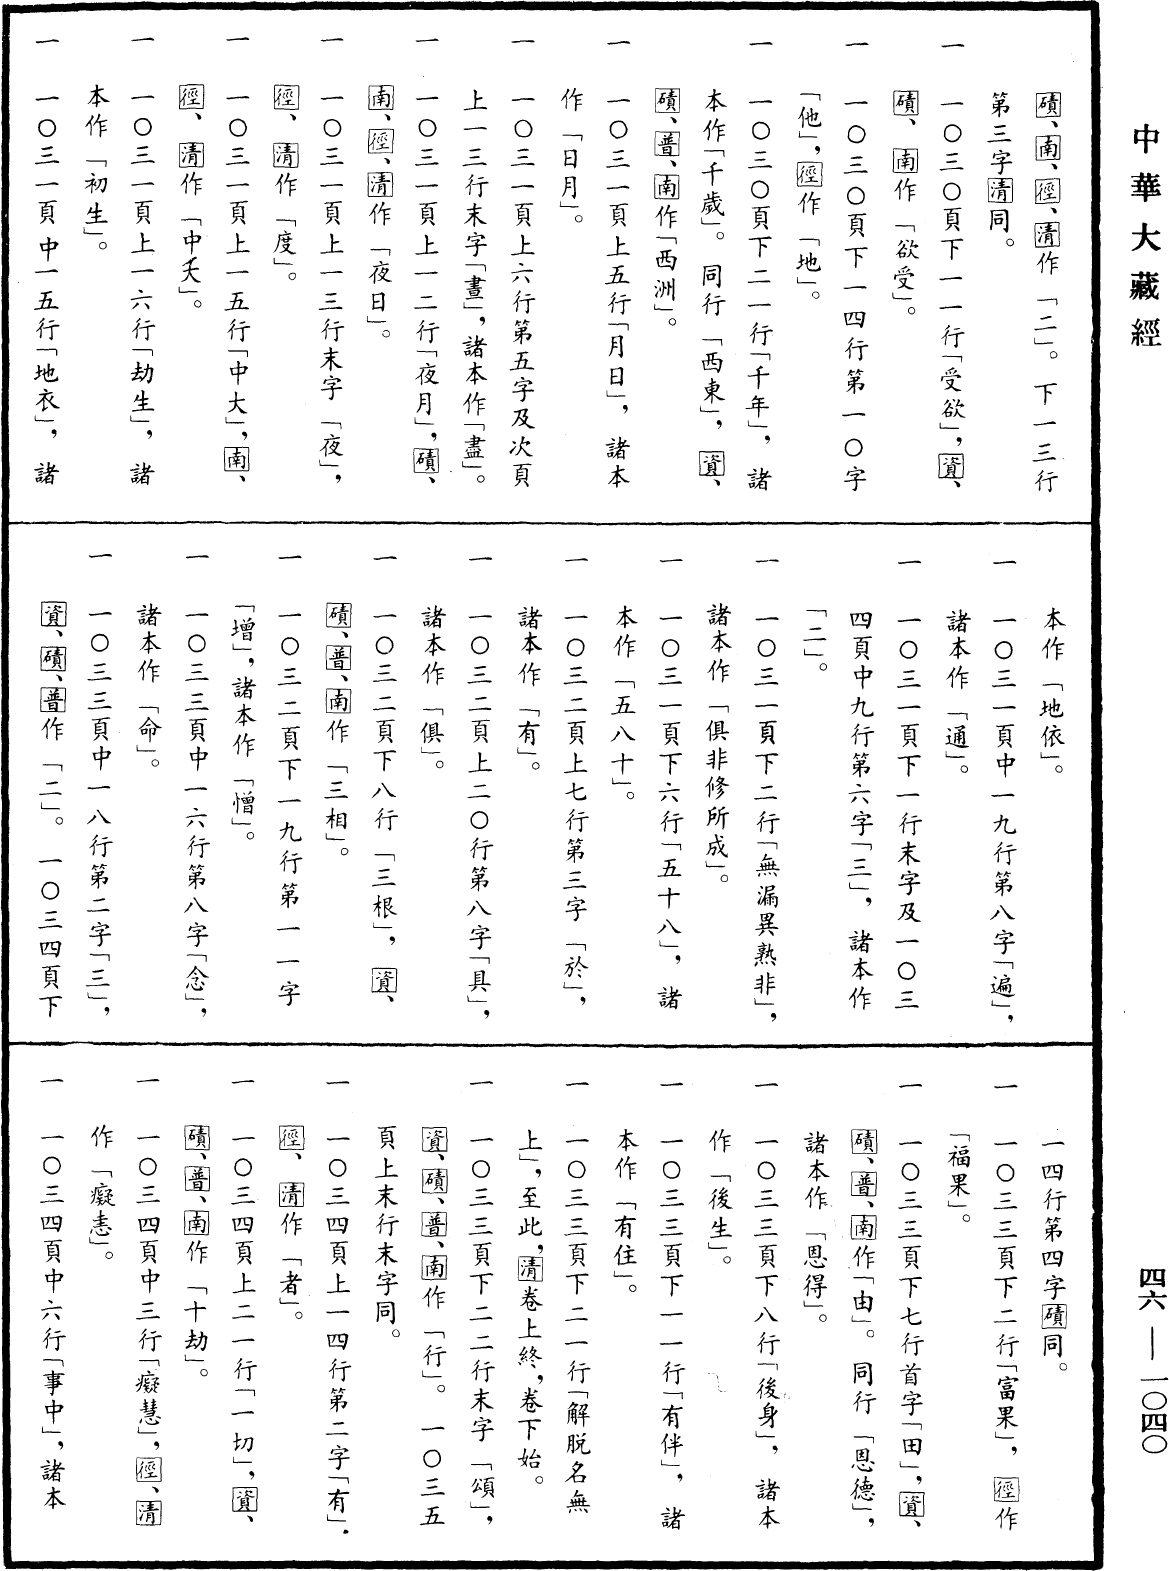 中華大藏經
磧、南、徑、清作「二」。下一三行
第三字清同。
一　一〇三〇頁下一一行「受欲」，資、
磧、南作「欲受」。
一　一〇三〇頁下一四行第一〇字
「他」，徑作「地」。
一　一〇三〇頁下二一行「千年」，諸
本作「千歲」。同行「西東」，資、
磧、普、南作「西洲」。
一　一〇三一頁上五行「月日」，諸本
作「日月」。
一　一〇三一頁上六行第五字及次頁
上一三行末字「晝」，諸本作「盡」。
一　一〇三一頁上一二行「夜月」，磧、
南、徑、清作「夜日」。
一　一〇三一頁上一三行末字「夜」，
徑、清作「度」。
一　一〇三一頁上一五行「中大」，南、
徑、清作「中夭」。
一　一〇三一頁上一六行「劫生」，諸
本作「初生」。
一　一〇三一頁中一五行「地衣」，諸
本作「地依」。
一　一〇三一頁中一九行第八字「遍」，
諸本作「通」。
一　一〇三一頁下一行末字及一〇三
四頁中九行第六字「三」，諸本作
「二」。
一　一〇三一頁下二行「無漏異熟非」，
諸本作「俱非修所成」。
一　一〇三一頁下六行「五十八」，諸
本作「五八十」。
一　一〇三二頁上七行第三字「於」，
諸本作「有」。
一　一〇三二頁上二〇行第八字「具」，
諸本作「俱」。
一　一〇三二頁下八行「三根」，資、
磧、普、南作「三相」。
一　一〇三二頁下一九行第一一字
「增」，諸本作「憎」。
一　一〇三三頁中一六行第八字「念」，
諸本作「命」。
一　一〇三三頁中一八行第二字「三」，
資、磧、普作「二」。一〇三四頁下
一四行第四字磧同。
一　一〇三三頁下二行「富果」，徑作
「福果」。
一　一〇三三頁下七行首字「田」，資、
磧、普、南作「由」。同行「恩德」，
諸本作「恩得」。
一　一〇三三頁下八行「後身」，諸本
作「後生」。
一　一〇三三頁下一一行「有伴」，諸
本作「有住」。
一　一〇三三頁下二一行「解脱名無
上」，至此，清卷上終，卷下始。
一　一〇三三頁下二二行末字「頌」，
資、磧、普、南作「行」。一〇三五
頁上末行末字同。
一　一〇三四頁上一四行第二字「有」，
徑、清作「者」。
一　一〇三四頁上二一行「一切」，資、
磧、普、南作「十劫」。
一　一〇三四頁中三行「癡慧」，徑、清
作「癡恚」。
一　一〇三四頁中六行「事中」，諸本
四六—一〇四〇